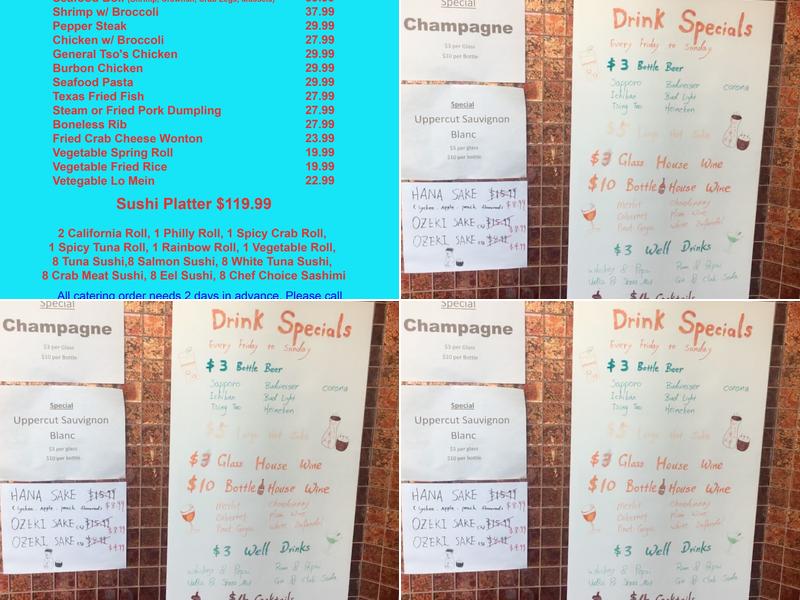 Shrimp w/ Broccoli 37.99
Pepper Steak 29.99
Chicken w/ Broccoli 27.99
General Tso's Chicken 29.99
Burbon Chicken 29.99
Seafood Pasta 29.99
Texas Fried Fish 27.99
Steam or Fried Pork Dumpling 27.99
Boneless Rib 27.99
Fried Crab Cheese Wonton 23.99
Vegetable Spring Roll 19.99
Vegetable Fried Rice 19.99
Vetegable Lo Mein 22.99
Sushi Platter $119.99
2 California Roll, 1 Philly Roll, 1 Spicy Crab Roll,
1 Spicy Tuna Roll, 1 Rainbow Roll, 1 Vegetable Roll,
8 Tuna Sushi,8 Salmon Sushi, 8 White Tuna Sushi,
8 Crab Meat Sushi, 8 Eel Sushi, 8 Chef Choice Sashimi
All catering order needs 2 days in advance. Please call
Champagne
$3 per Glass
$10 per Bottle
Special
Uppercut Sauvignon
Blanc
$3 per glass
$10 per bottle
HANA SAKE $15.99 $8.99
(Lychee, Apple, peach flavored)
OZEKI SAKE $15.99 $8.99
OZEKI SAKE $8.99 $4.99
Drink Specials
Every Friday to Sunday
$3 Bottle Beer
Sapporo Budweiser corona
Ichiban Bud Light
Tsing Tao Heineken
$5 Large Hot Sake
$3 Glass House Wine
$10 Bottle House Wine
Merlot Chardonnay
Cabernet Plum Wine
Pinot Grigio White Zinfandel
$3 Well Drinks
Whiskey & Pepsi Rum & Pepsi
Vodka & Gin & Club Soda
Special
Champagne
$3 per Glass
$10 per Bottle
Special
Uppercut Sauvignon
Blanc
$3 per glass
$10 per bottle
HANA SAKE $15.99 $8.99
(Lychee, Apple, peach flavored)
OZEKI SAKE $15.99 $8.99
OZEKI SAKE $8.99 $4.99
Drink Specials
Every Friday to Sunday
$3 Bottle Beer
Sapporo Budweiser corona
Ichiban Bud Light
Tsing Tao Heineken
$5 Large Hot Sake
$3 Glass House Wine
$10 Bottle House Wine
Merlot Chardonnay
Cabernet Plum Wine
Pinot Grigio White Zinfandel
$3 Well Drinks
Whiskey & Pepsi Rum & Pepsi
Vodka & Gin & Club Soda
Special
Champagne
$3 per Glass
$10 per Bottle
Special
Uppercut Sauvignon
Blanc
$3 per glass
$10 per bottle
HANA SAKE $15.99 $8.99
(Lychee, Apple, peach flavored)
OZEKI SAKE $15.99 $8.99
OZEKI SAKE $8.99 $4.99
Drink Specials
Every Friday to Sunday
$3 Bottle Beer
Sapporo Budweiser corona
Ichiban Bud Light
Tsing Tao Heineken
$5 Large Hot Sake
$3 Glass House Wine
$10 Bottle House Wine
Merlot Chardonnay
Cabernet Plum Wine
Pinot Grigio White Zinfandel
$3 Well Drinks
Whiskey & Pepsi Rum & Pepsi
Vodka & Gin & Club Soda